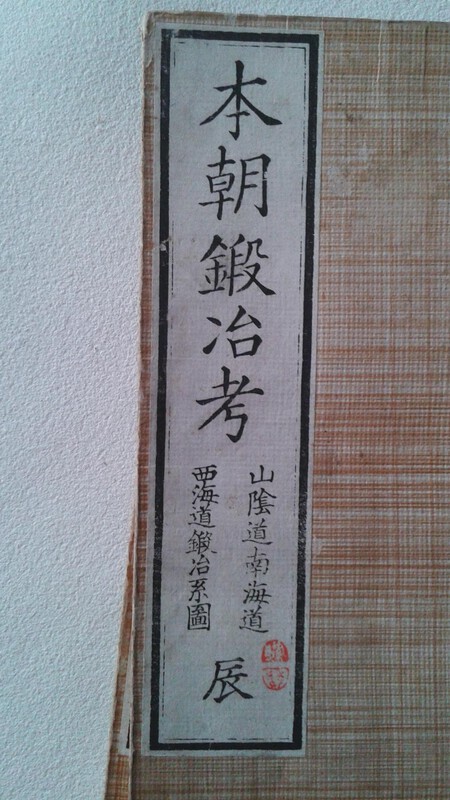 本朝鍛冶考
山陰道南海道
西海道鍛冶系圖
辰